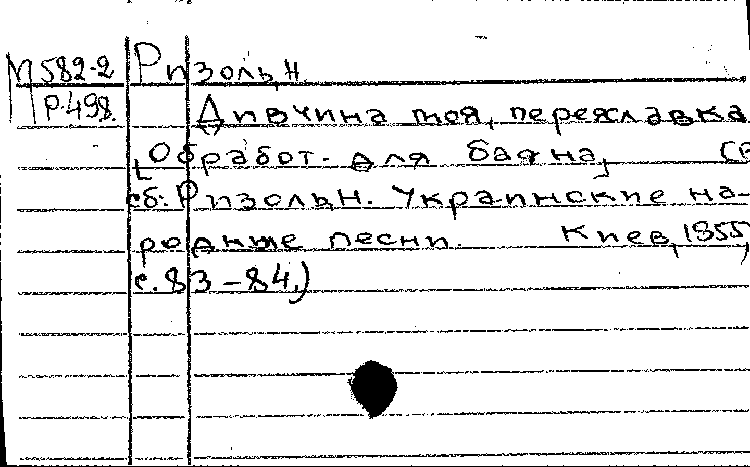 М582-2 Ризоль, Н.
Р.498. Дивчина моя, переяславка
[Обработ. для баяна] (В
сб: Ризоль, Н. Украинские на-
родные песни. Киев, 1955,
с. 83-84.)